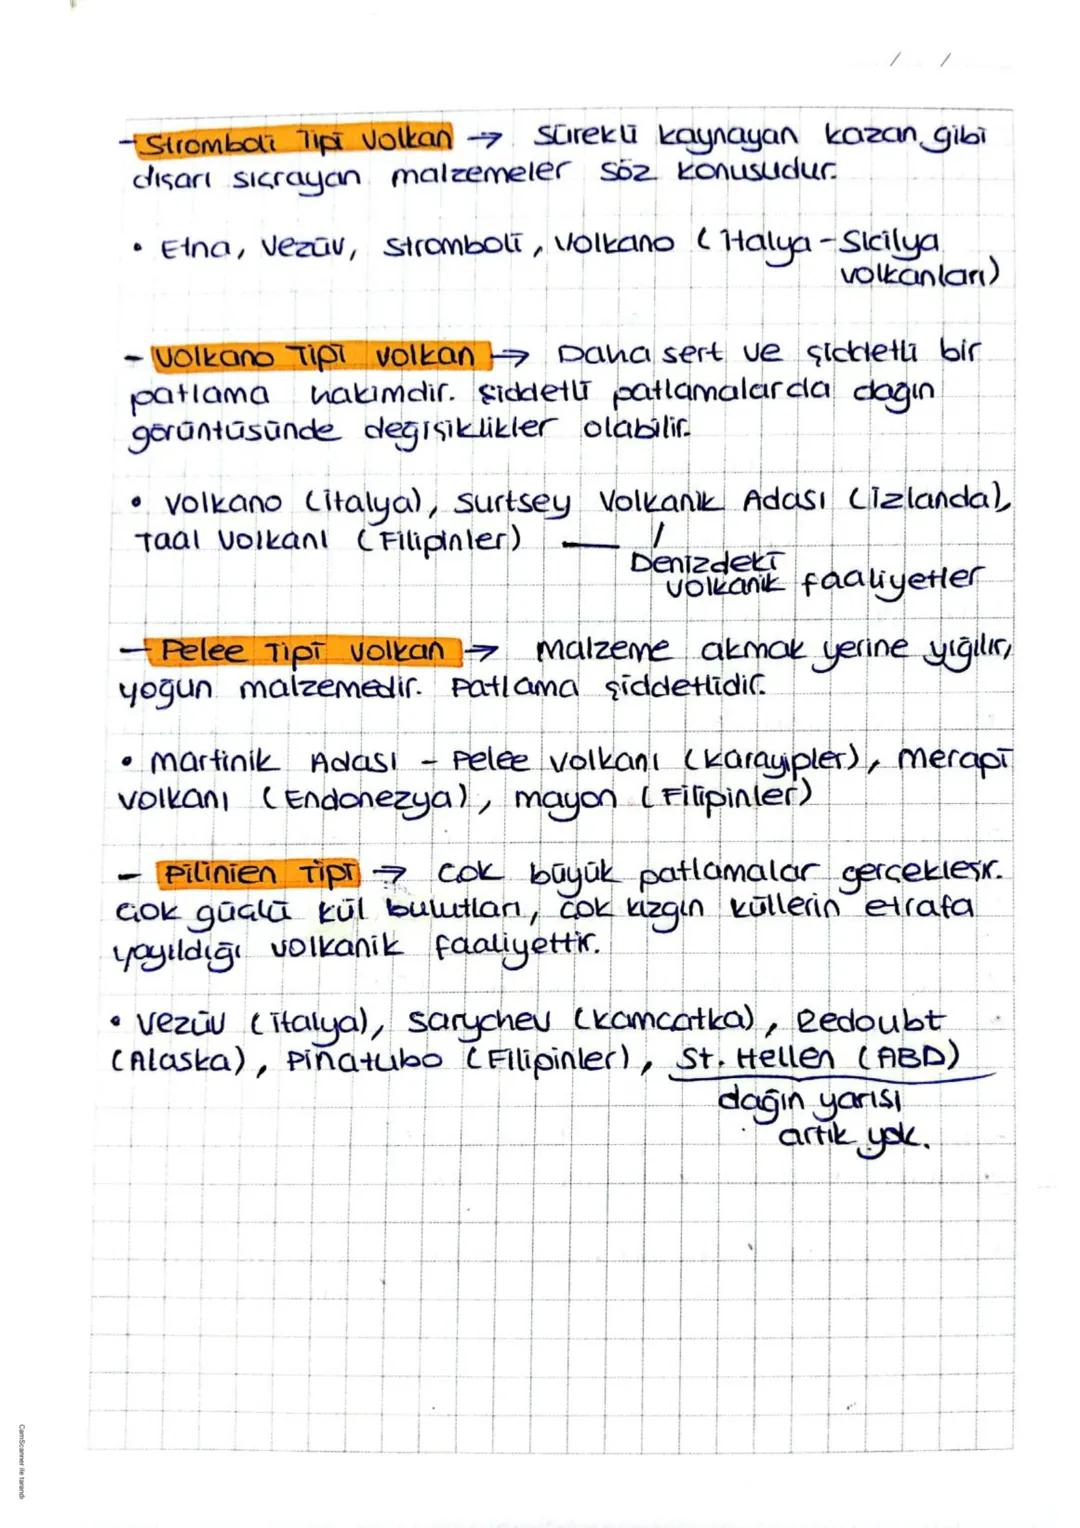 / /
- Stromboli Tipi Volkan → Sürekli kaynayan kazan gibi
dışarı sıçrayan malzemeler söz konusudur.
• Etna, Vezüv, Stromboli, Volkano (İtalya - Sicilya
volkanları)
- Volkano Tipi volkan → Daha sert ve şiddetli bir
patlama hakimdir. Şiddetli patlamalarda dağın
görüntüsünde değişiklikler olabilir.
• Volkano (italya), Surtsey Volkanik Adası (izlanda),
Taal Volkanı (Filipinler) — /
Denizdeki
volkanik faaliyetler
- Pelee Tipi volkan → malzeme akmak yerine yığılır,
yoğun malzemedir. Patlama şiddetlidir.
• martinik Adası - Pelee volkanı (karayipler), merapi
volkanı (Endonezya), mayon (Filipinler)
- Pilinien Tipi → çok büyük patlamalar gerçekleşir.
Çok güçlü kül bulutları, çok kızgın küllerin etrafa
yayıldığı volkanik faaliyettir.
• Vezüv (italya), Sarychev (kamcatka), Redoubt
(Alaska), Pinatubo (Filipinler), St. Hellen (ABD)
dağın yarısı
artık yok.
CamScanner ile tarandı